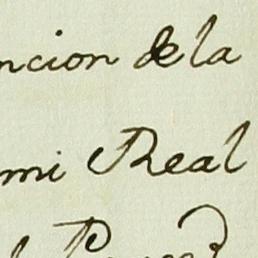 ncion de la
mi Real